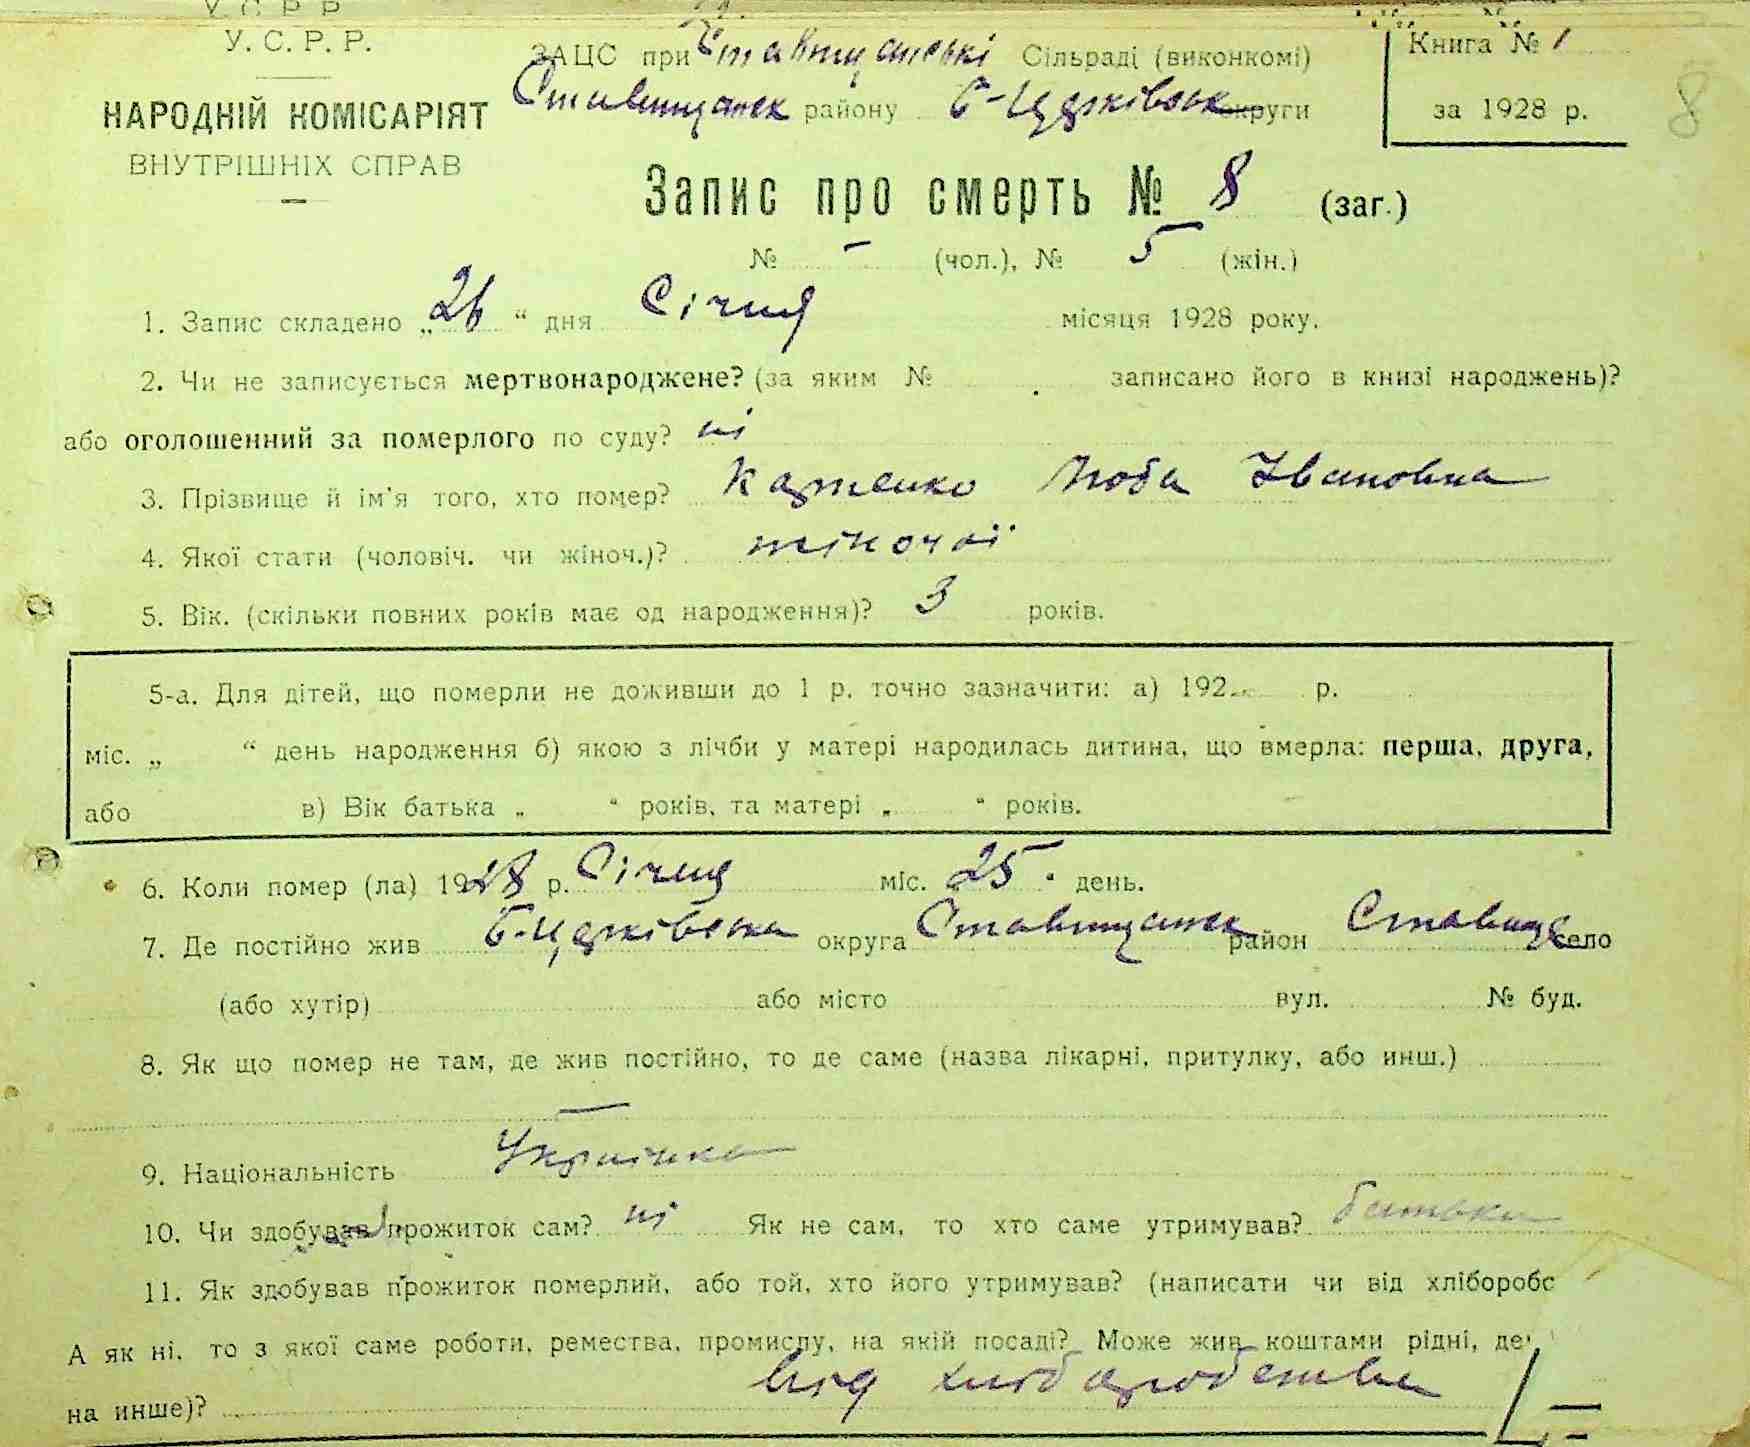 У. С. Р. Р.
У. С. Р. Р.
НАРОДНІЙ КОМІСАРІЯТ
ВНУТРІШНІХ СПРАВ
ЗАЦС при Сільраді (виконкомі)
Ставищанськ району Б-Церківськ округи
Книга № 1
за 1928 р.
8
Запис про смерть № 8 (заг.)
№ – (чол.), № 5 (жін.)
1. Запис складено „26“ дня Січня місяця 1928 року.
2. Чи не записується мертвонароджене? (за яким № записано його в книзі народжень)?
або оголошенний за померлого по суду? ні
3. Прізвище й ім'я того, хто помер? Люба Івановна
4. Якої стати (чоловіч. чи жіноч.)? жіночої
5. Вік. (скільки повних років має од народження)? 3 років.
5-а. Для дітей, що померли не доживши до 1 р. точно зазначити: а) 192 р.
міс. „ “ день народження б) якою з лічби у матері народилась дитина, що вмерла: перша, друга,
або в) Вік батька „ “ років, та матері „ “ років.
6. Коли помер (ла) 1928 р. Січня міс. 25 день.
7. Де постійно жив Б-Церківська округа Ставищанськ район Ставище село
(або хутір) або місто вул. № буд.
8. Як що помер не там, де жив постійно, то де саме (назва лікарні, притулку, або инш.)
—
9. Національність Українка
10. Чи здобував прожиток сам? ні Як не сам, то хто саме утримував? батьки
11. Як здобував прожиток померлий, або той, хто його утримував? (написати чи від хліборобс
А як ні, то з якої саме роботи, ремества, промислу, на якій посаді? Може жив коштами рідні, де
на инше)? від хліборобства